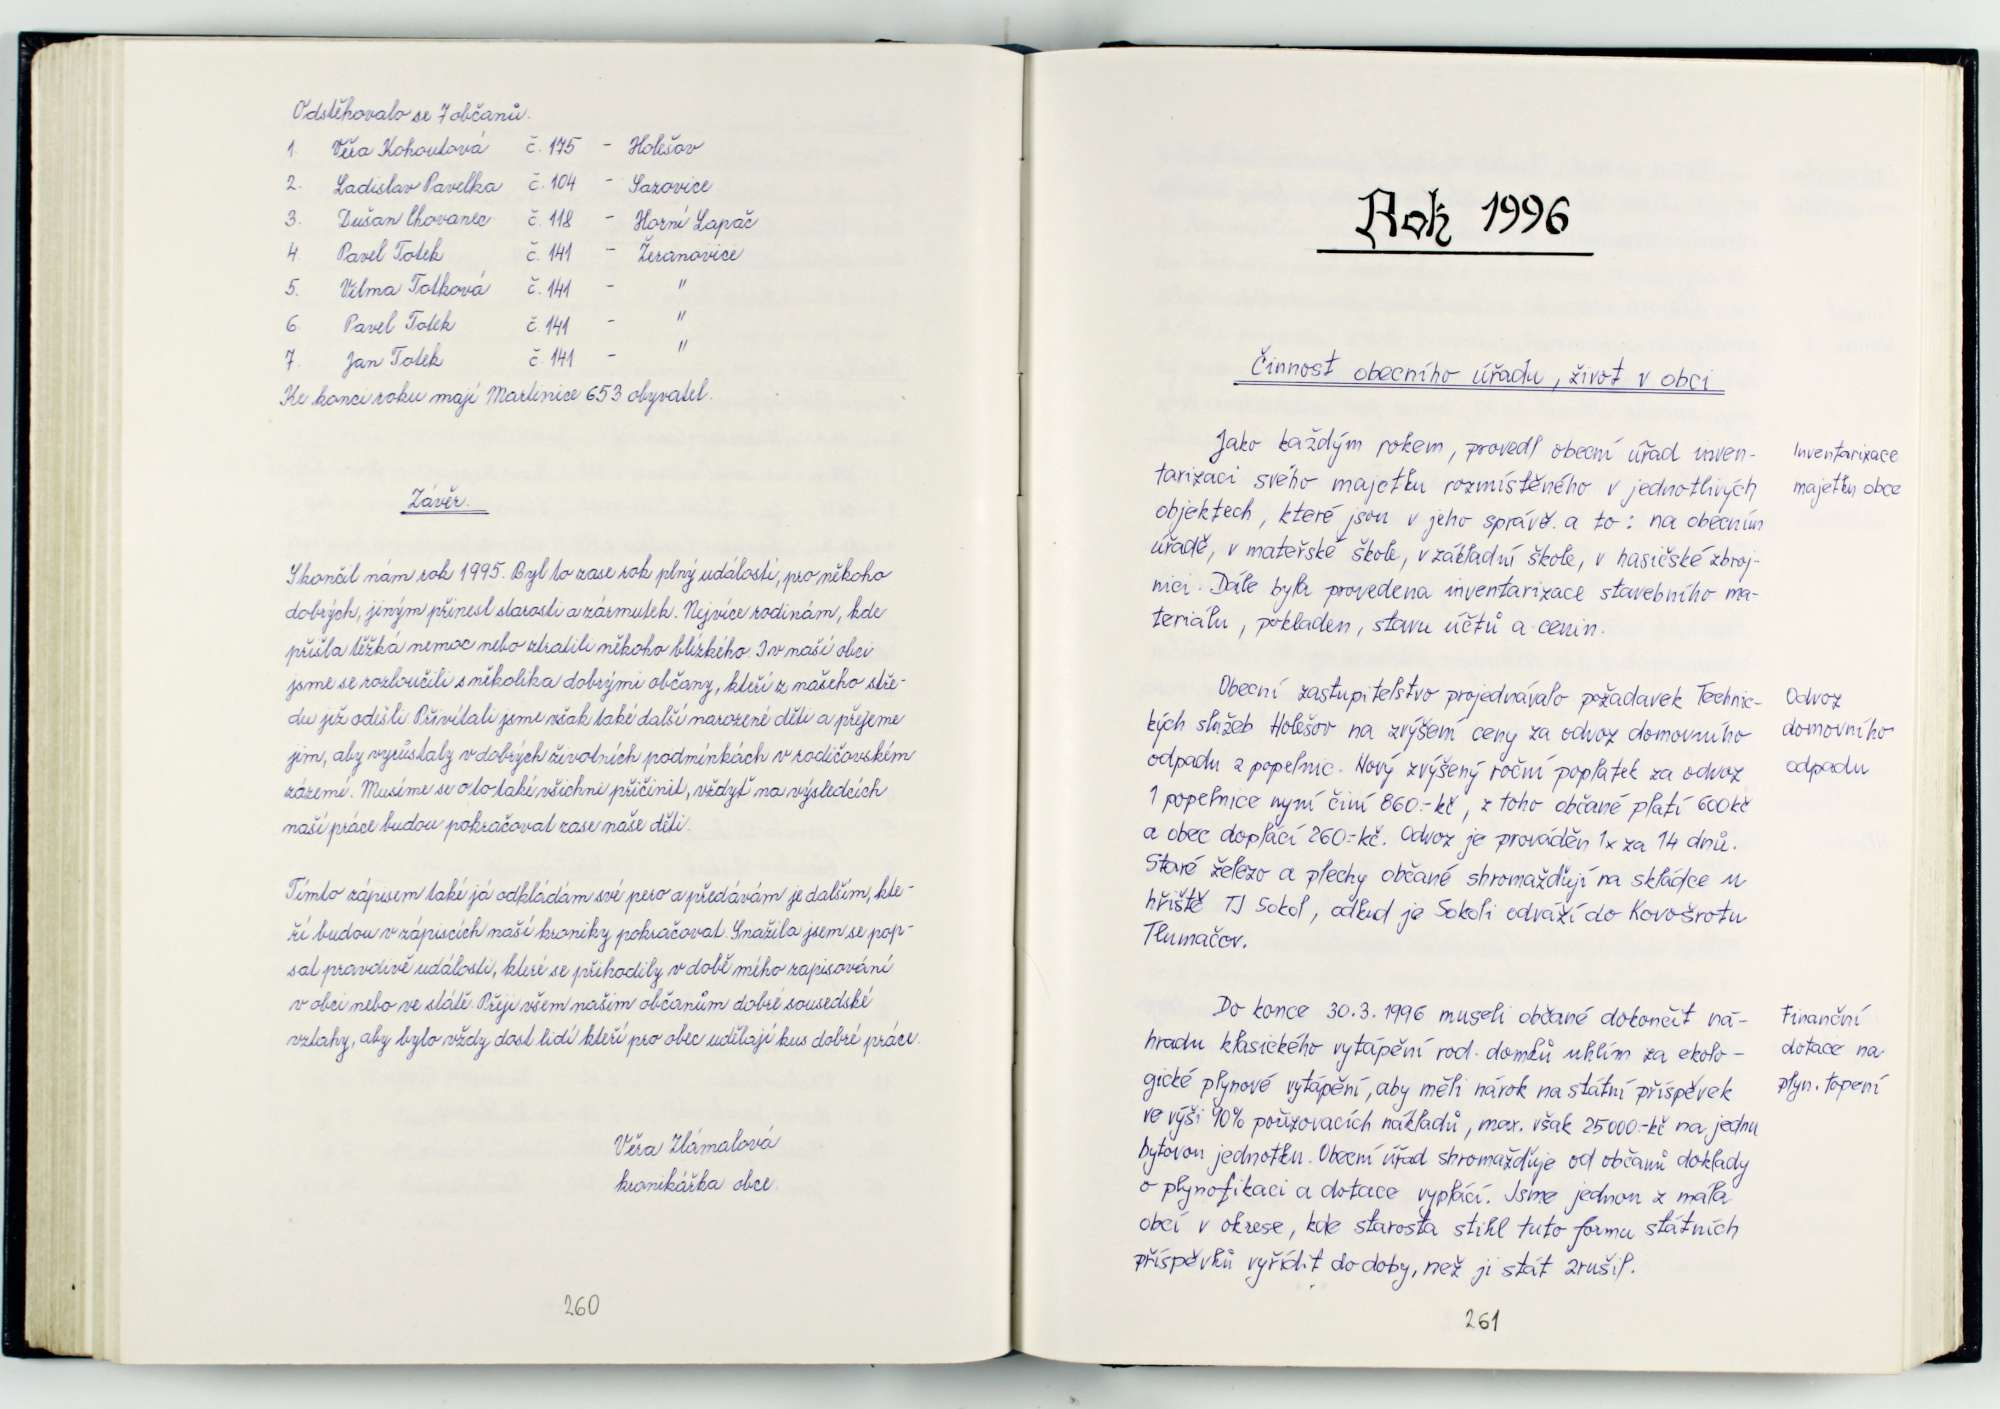 Odstěhovalo se 7 občanů.
1. Věra Kohoutová č. 175 - Holešov
2. Ladislav Pavelka č. 104 - Sazovice
3. Dušan Chovanec č. 118 - Horní Lapač
4. Pavel Totek č. 141 - Žeranovice
5. Vilma Totková č. 141 - "
6. Pavel Totek č. 141 - "
7. Jan Totek č. 141 - "
Ke konci roku mají Martinice 653 obyvatel.
Závěr.
Skončil nám rok 1995. Byl to zase rok plný událostí, pro někoho
dobrých, jiným přinesl starosti a zármutek. Nejvíce rodinám, kde
přišla těžká nemoc nebo ztratili někoho blízkého. I v naší obci
jsme se rozloučili s několika dobrými občany, kteří z našeho stře-
du již odešli. Přivítali jsme však také další narozené děti a přejeme
jim, aby vyrůstaly v dobrých životních podmínkách v rodičovském
zázemí. Musíme se o to také všichni přičinit, vždyť na výsledcích
naší práce budou pokračovat zase naše děti.
Tímto zápisem také já odkládám své pero a předávám je dalším, kte-
ří budou v zápiscích naší kroniky pokračovat. Snažila jsem se pop-
sat pravdivě události, které se přihodily v době mého zapisování
v obci nebo ve státě. Přeji všem našim občanům dobré sousedské
vztahy, aby bylo vždy dost lidí kteří pro obec udělají kus dobré práce.
Věra Zlámalová
kronikářka obce.
260
Rok 1996
Činnost obecního úřadu, život v obci
Jako každým rokem, provedl obecní úřad inven-
tarizaci svého majetku rozmístěného v jednotlivých
objektech, které jsou v jeho správě. a to: na obecním
úřadě, v mateřské škole, v základní škole, v hasičské zbroj-
nici. Dále byla provedena inventarizace stavebního ma-
teriálu, pokladen, stavu účtů a cenin.
Inventarizace
majetku obce
Obecní zastupitelstvo projednávalo požadavek Technic-
kých služeb Holešov na zvýšení ceny za odvoz domovního
odpadu z popelnic. Nový zvýšený roční poplatek za odvoz
1 popelnice nyní činí 860.-kč, z toho občané platí 600kč
a obec doplácí 260.-kč. Odvoz je prováděn 1x za 14 dnů.
Staré železo a plechy občané shromažďují na skládce u
hřiště TJ Sokol, odkud je Sokoli odváží do Kovošrotu
Tlumačov.
Odvoz
domovního
odpadu
Do konce 30.3.1996 museli občané dokončit ná-
hradu klasického vytápění rod. domků uhlím za ekolo-
gické plynové vytápění, aby měli nárok na státní příspěvek
ve výši 40% pořizovacích nákladů, max. však 25000.-kč na jednu
bytovou jednotku. Obecní úřad shromažďuje od občanů doklady
o plynofikaci a dotace vyplácí. Jsme jednou z mála
obcí v okrese, kde starosta stihl tuto formu státních
příspěvků vyřídit do doby, než ji stát zrušil.
Finanční
dotace na
plyn. topení
261